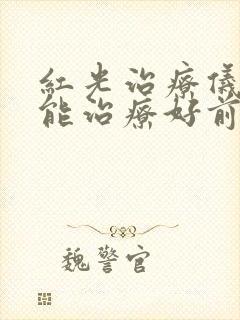 紅光治療儀
能治療好前
魏警官